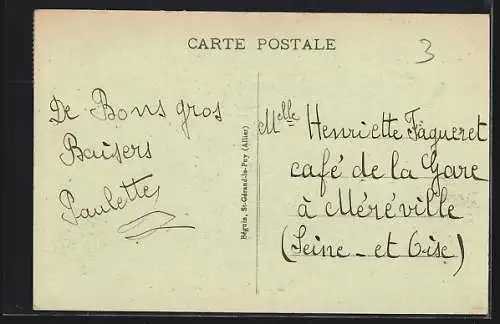 CARTE POSTALE
3
De Bons gros
Baisers
Paulette
Béguin, St-Gérand-le-Puy (Allier)
Melle Henriette Faqueret
café de la Gare
à Méréville
(Seine-et Oise)